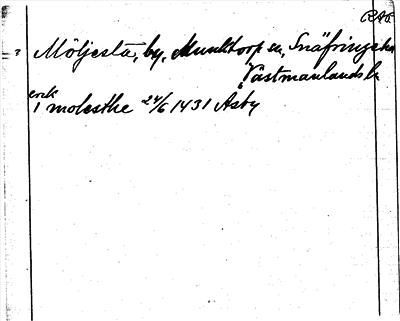 RAÖ
Möljesta, by, Munktorp sn, Snäfringe hd
Västmanlands l.
erik
i molesthe 24/6 1431 Äsby